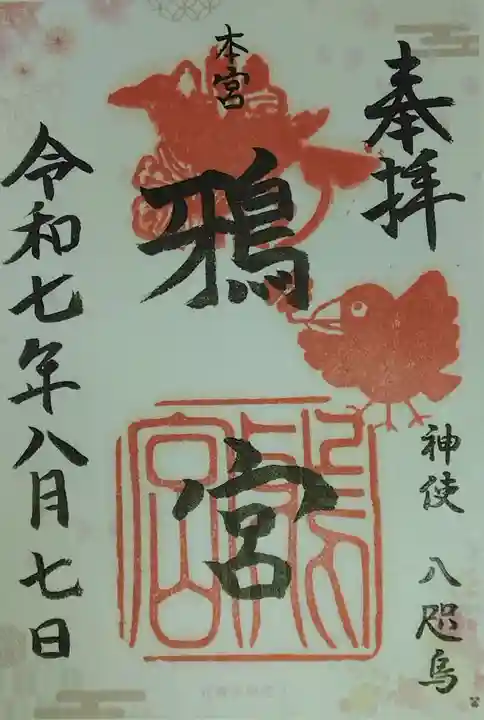 奉拝
神使 八咫烏
本宮
鴉宮
令和七年八月七日